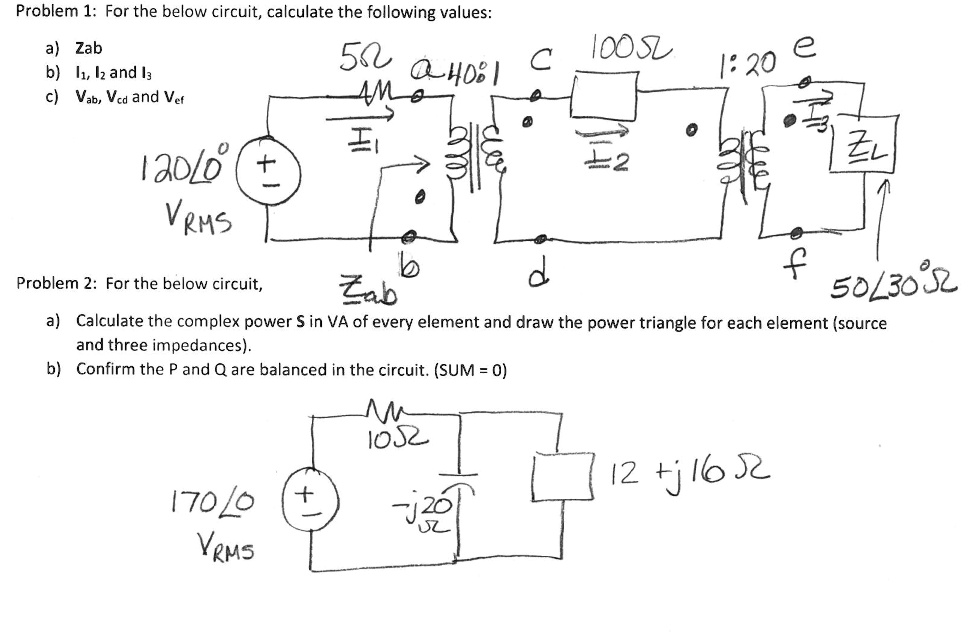 Problem 1: For the below circuit, calculate the following values:
a) Zab
b) I1, I2 and I3
c) Vab, Vcd and Vef
5Ω
a
40:1
c
100Ω
1:20
e
I1
I2
I3
ZL
120∠0°
VRMS
+
-
b
d
f
Zab
50∠30°Ω
Problem 2: For the below circuit,
a) Calculate the complex power S in VA of every element and draw the power triangle for each element (source
and three impedances).
b) Confirm the P and Q are balanced in the circuit. (SUM = 0)
10Ω
170∠0
VRMS
+
-
-j20
Ω
12 +j16 Ω